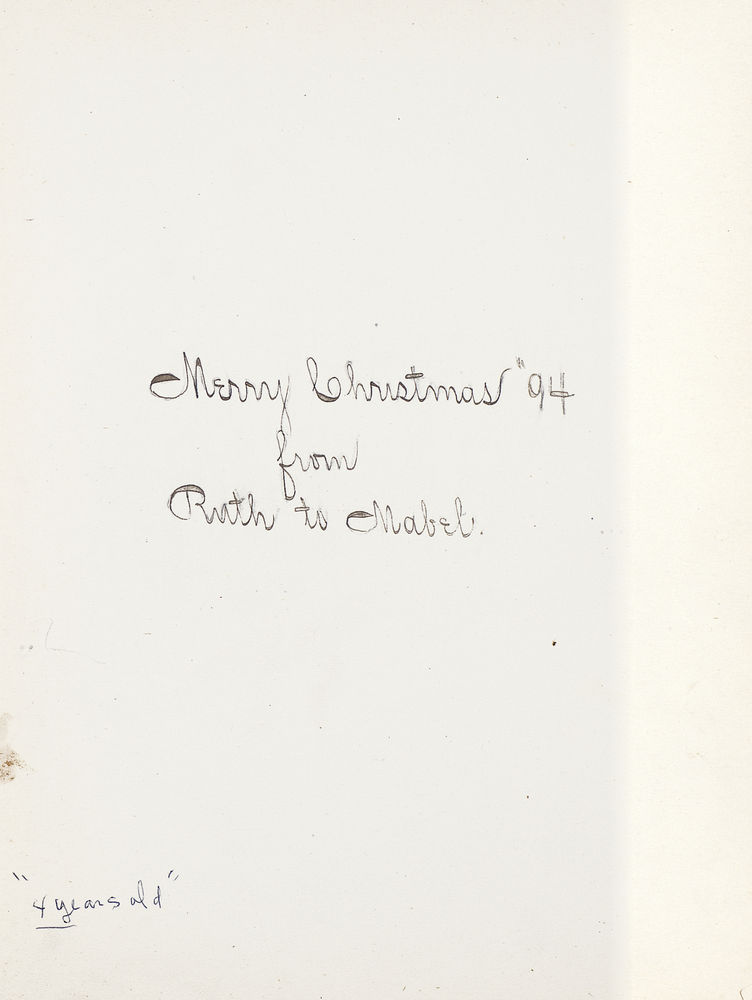 Merry Christmas "94
from
Ruth to Mabel.
"4 years old"